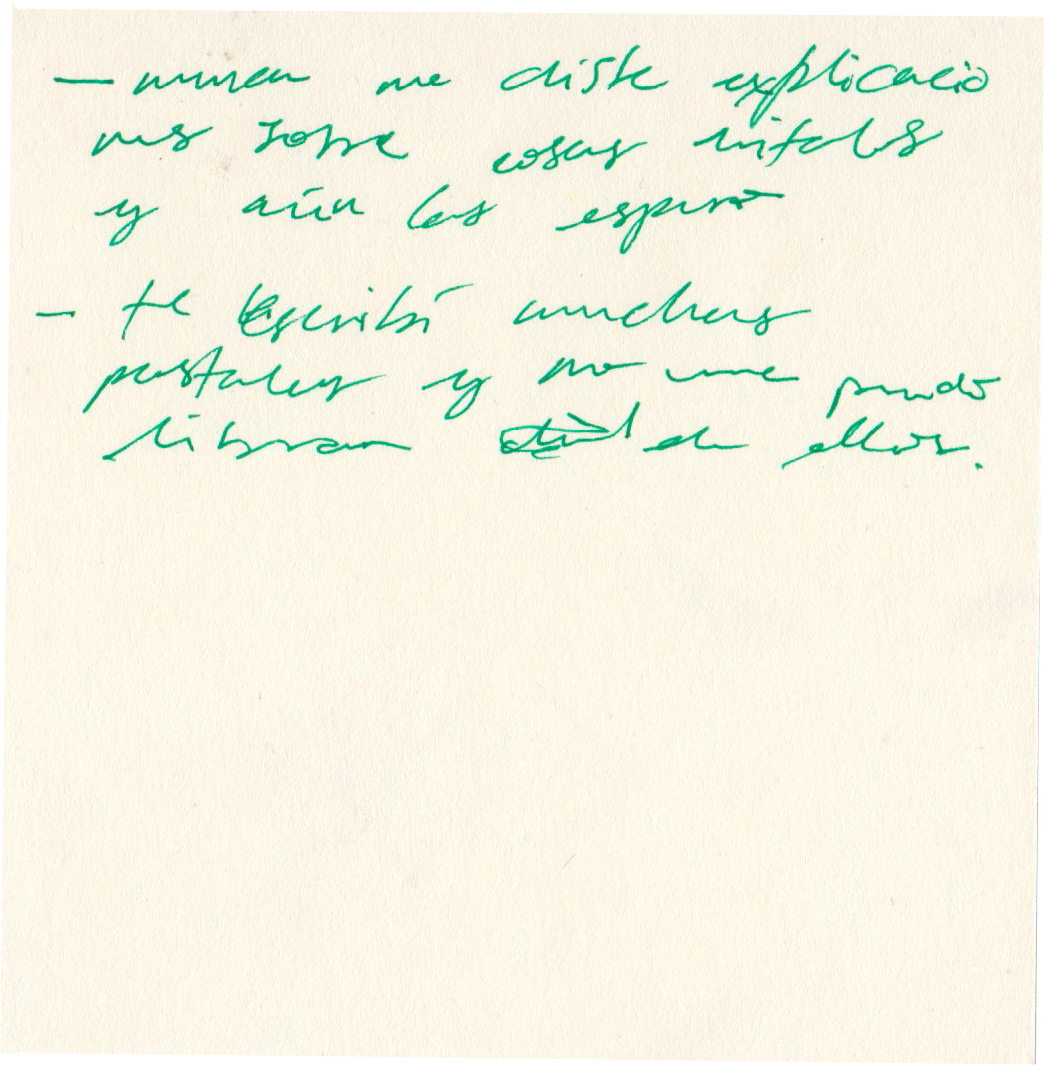 — nunca me diste explicacio
nes sobre cosas vitales
y aún las espero
- te escribí muchas
postales y no me puedo
librar de ellas.